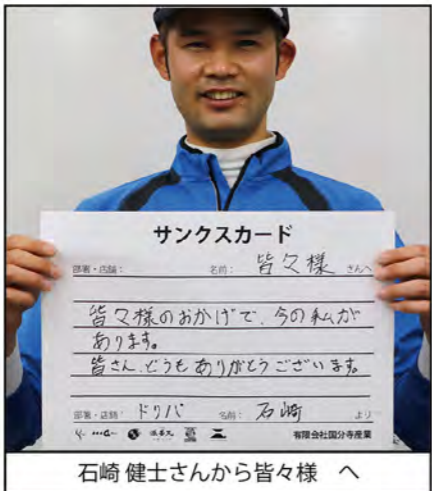 サンクスカード
部署・店舗: 名前: 皆々様 さんへ
皆々様のおかげで、今の私が
あります。
皆さん、どうもありがとうございます。
部署・店舗: ドリバ 名前: 石崎 より
有限会社国分寺産業
石崎 健士さんから皆々様 へ